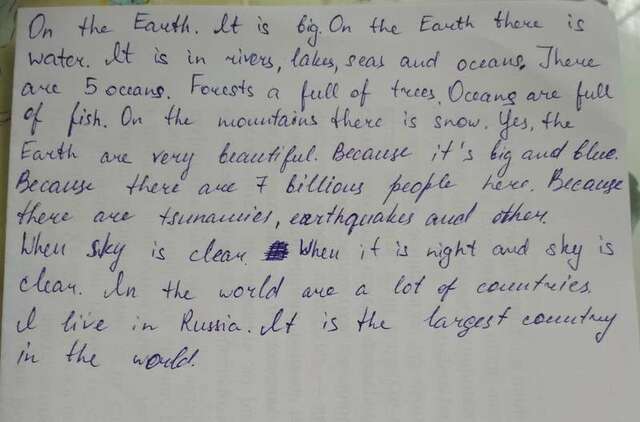 On the Earth. It is big. On the Earth there is
water. It is in rivers, lakes, seas and oceans. There
are 5 oceans. Forests a full of trees. Oceans are full
of fish. On the mountains there is snow. Yes, the
Earth are very beautiful. Because it's big and blue.
Because there are 7 billions people here. Because
there are tsunamies, earthquakes and other.
When sky is clear. When it is night and sky is
clear. In the world are a lot of countries.
I live in Russia. It is the largest country
in the world.